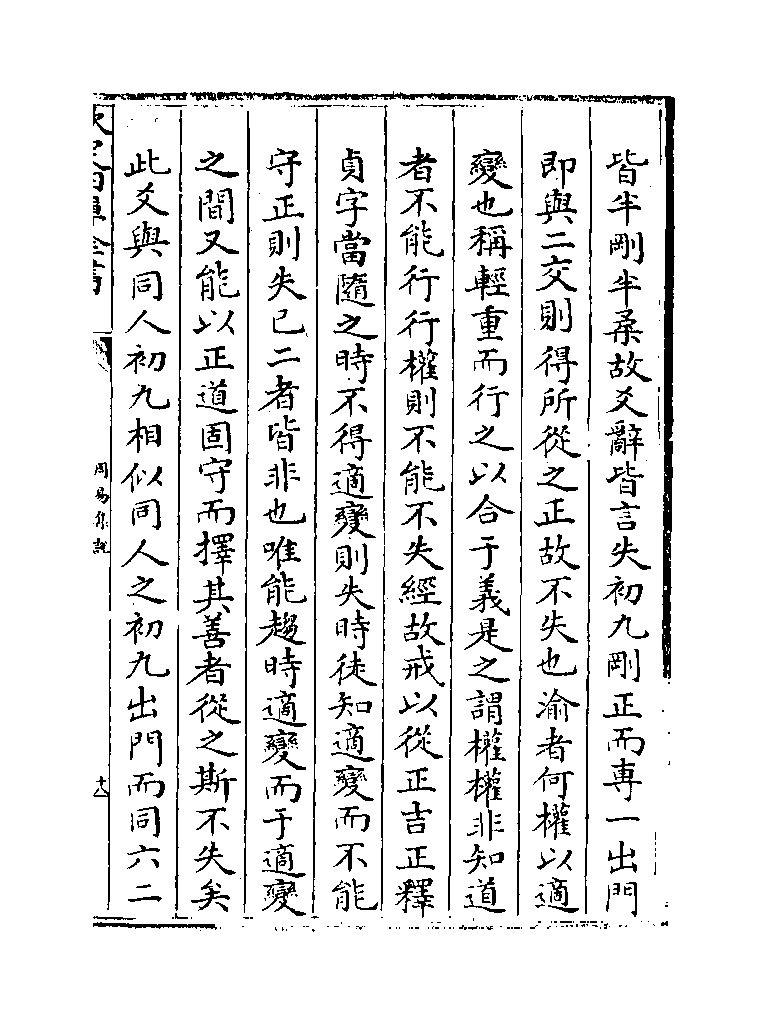 皆半剛半柔故爻辭皆言失初九剛正而專一出門
即與二交則得所從之正故不失也渝者何權以適
變也稱輕重而行之以合于義是之謂權權非知道
者不能行行權則不能不失經故戒以從正吉正釋
貞字當隨之時不得適變則失時徒知適變而不能
守正則失已二者皆非也唯能趨時適變而于適變
之間又能以正道固守而擇其善者從之斯不失矣
此爻與同人初九相似同人之初九出門而同六二
欽定四庫全書
周易集說
十八